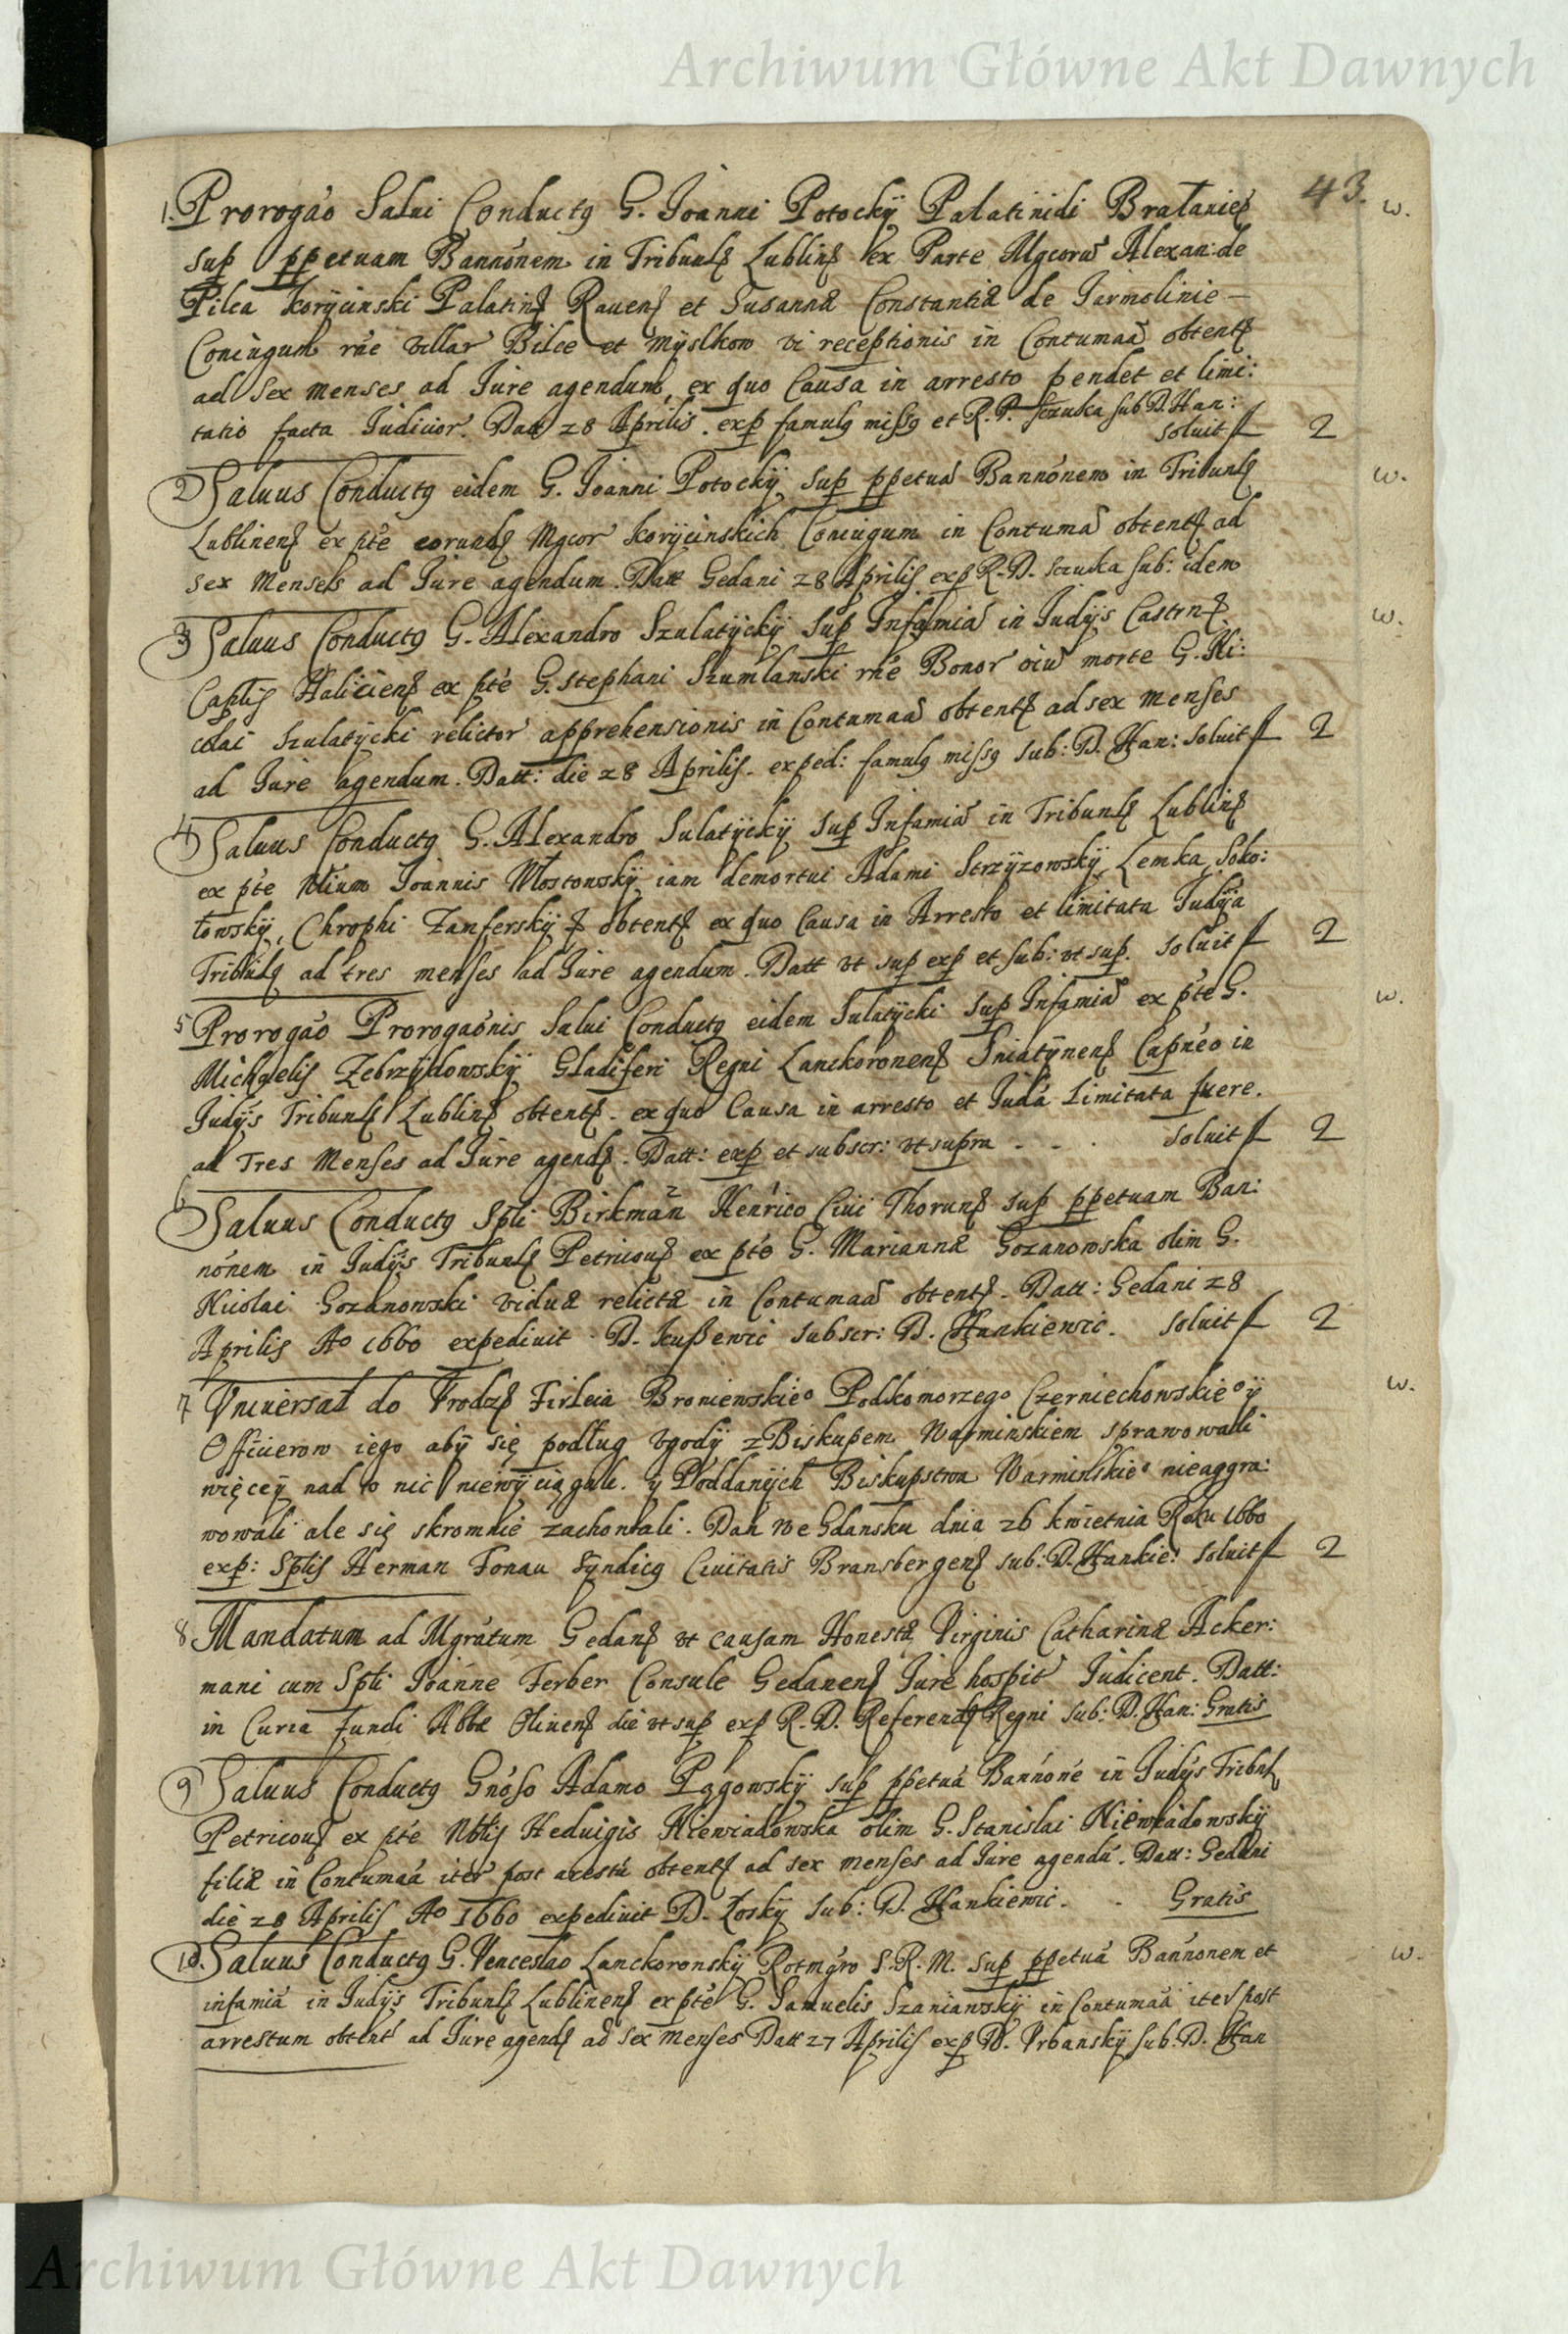 Archiwum Główne Akt Dawnych
43.
1. Prorogão Salui Conductq G. Joanni Potockÿ Palatinidi Braclauieñ w.
sup ppetuam Bannonem in Tribunlj Lublinj ex Parte Mgcorũ Alexan: de
Pilca Korÿcinski Palatinj Rauenj et Susannæ Constantiæ de Jarmolinie –
Coniugum rñe villar Bilce et Mÿslkow vi receptionis in Contumaã obtentj
ad Sex menses ad Jure agendum, ex quo Causa in arresto pendet et limi:
tatio facta Judicior. Datt 28 Aprilis. exp famulq missq et R. D. Sczuka sub D. Han:
soluit f 2
2 Saluus Conductq eidem G. Joanni Potockÿ sup ppetuã Bannonem in Tribunlj w.
Lublinenj ex pte eorundj Mgcor Korÿcinskich Coniugum in Contumã obtentj ad
sex Menses ad Jure agendum. Datt Gedani 28 Aprilis exp R. D. Sczuka sub: idem
3 Saluus Conductq G. Alexandro Szulatÿckÿ sup Infamiã in Judÿs Castrnj w.
Captis Halicienj ex pte G. Stephani Szumlanski rñe Bonor oiũ morte G. Ni:
colai Szulatÿcki relictor apprehensionis in Contumaã obtentj ad sex menses
ad Jure agendum. Datt: die 28 Aprilis. exped: famulq missq sub: D. Han: soluit f 2
4 Saluus Conductq G. Alexandro Sulatÿckÿ sup Infamiã in Tribunlj Lublinj
ex pte Nlium Joannis Mostowskÿ iam demortui Adami Strzÿzowskÿ Lemka Soko:
lowskÿ, Chrophi Zamferskÿ obtentj ex quo Causa in Arresto et limitata Judÿa
Tribulj ad tres menses ad Jure agendum. Datt vt sup exp et sub: vt sup. soluit f 2
5 Prorogão Prorogaõnis Salui Conductq eidem Sulatÿcki sup Infamiã ex pte G. w.
Michaelis Zebrzÿdowskÿ Gladiferi Regni Lanckoronenj Sniatÿnenj Capneo in
Judÿs Tribunlj Lublinj obtentj. ex quo Causa in arresto et Judã Limitata fuere.
ad Tres Menses ad Jure agendj. Datt: exp et subscr: vt supra . . . soluit f 2
6 Saluus Conductq Spli Birkman Henrico Ciui Thorunj sup ppetuam Ban:
nonem in Judÿs Tribunlj Petricouj ex pte G. Mariannæ Gozanowska olim G.
Nicolai Gozdnowski viduæ relictæ in Contumaã obtentj. Datt: Gedani 28
Aprilis Ao 1660 expediuit D. Kußewic subscr: D. Hankiewic. soluit f 2
7 Vniuersał do Vrodzj Firleia Broniewskieo Podkomorzego Czerniechowskieo ÿ w.
Officierow iego abÿ się podług vgodÿ z Biskupem Warminskiem sprawowali
więceÿ nad to nic niewÿciągali. ÿ Poddanÿch Biskupstwa Warminskieo nieaggra:
wowali ale się skromnie zachowali. Dan we Gdansku dnia 26 kwietnia Roku 1660
exp: Splis Herman Fonau Sÿndicq Ciuitatis Bransbergenj sub: D. Hankie: soluit f 2
8 Mandatum ad Mgratum Gedanj vt causam Honestæ Virginis Catharinæ Acker:
mani cum Spli Joanne Ferber Consule Gedanenj Jure hospit Judicent. Datt:
in Curia fundi Abbæ Oliuenj die vt sup exp R. D. Referendj Regni sub: D. Han: Gratis
9 Saluus Conductq Gnoso Adamo Pągowskÿ sup ppetuã Bannone in Judÿs Tribnl
Petricouj ex pte Nblis Heduigis Niewiadowska olim G. Stanislai Niewiadowskÿ
filiæ in Contumaã iter post arestũ obtentj ad sex menses ad Jure agendũ. Datt: Gedani
die 28 Aprilis Ao 1660 expediuit D. Łoskÿ sub: D. Hankiewic. . Gratis
10. Saluus Conductq G. Venceslao Lanckoronskÿ Rotmgro S. R. M. sup ppetuã Bannonem et w.
infamiã in Judÿs Tribunlj Lublinenj ex pte G. Samuelis Szaniawskÿ in Contumaã iter post
arrestum obtent ad Jure agendj ad sex menses Datt 27 Aprilis exp D. Vrbanskÿ sub: D. Han
Archiwum Główne Akt Dawnych